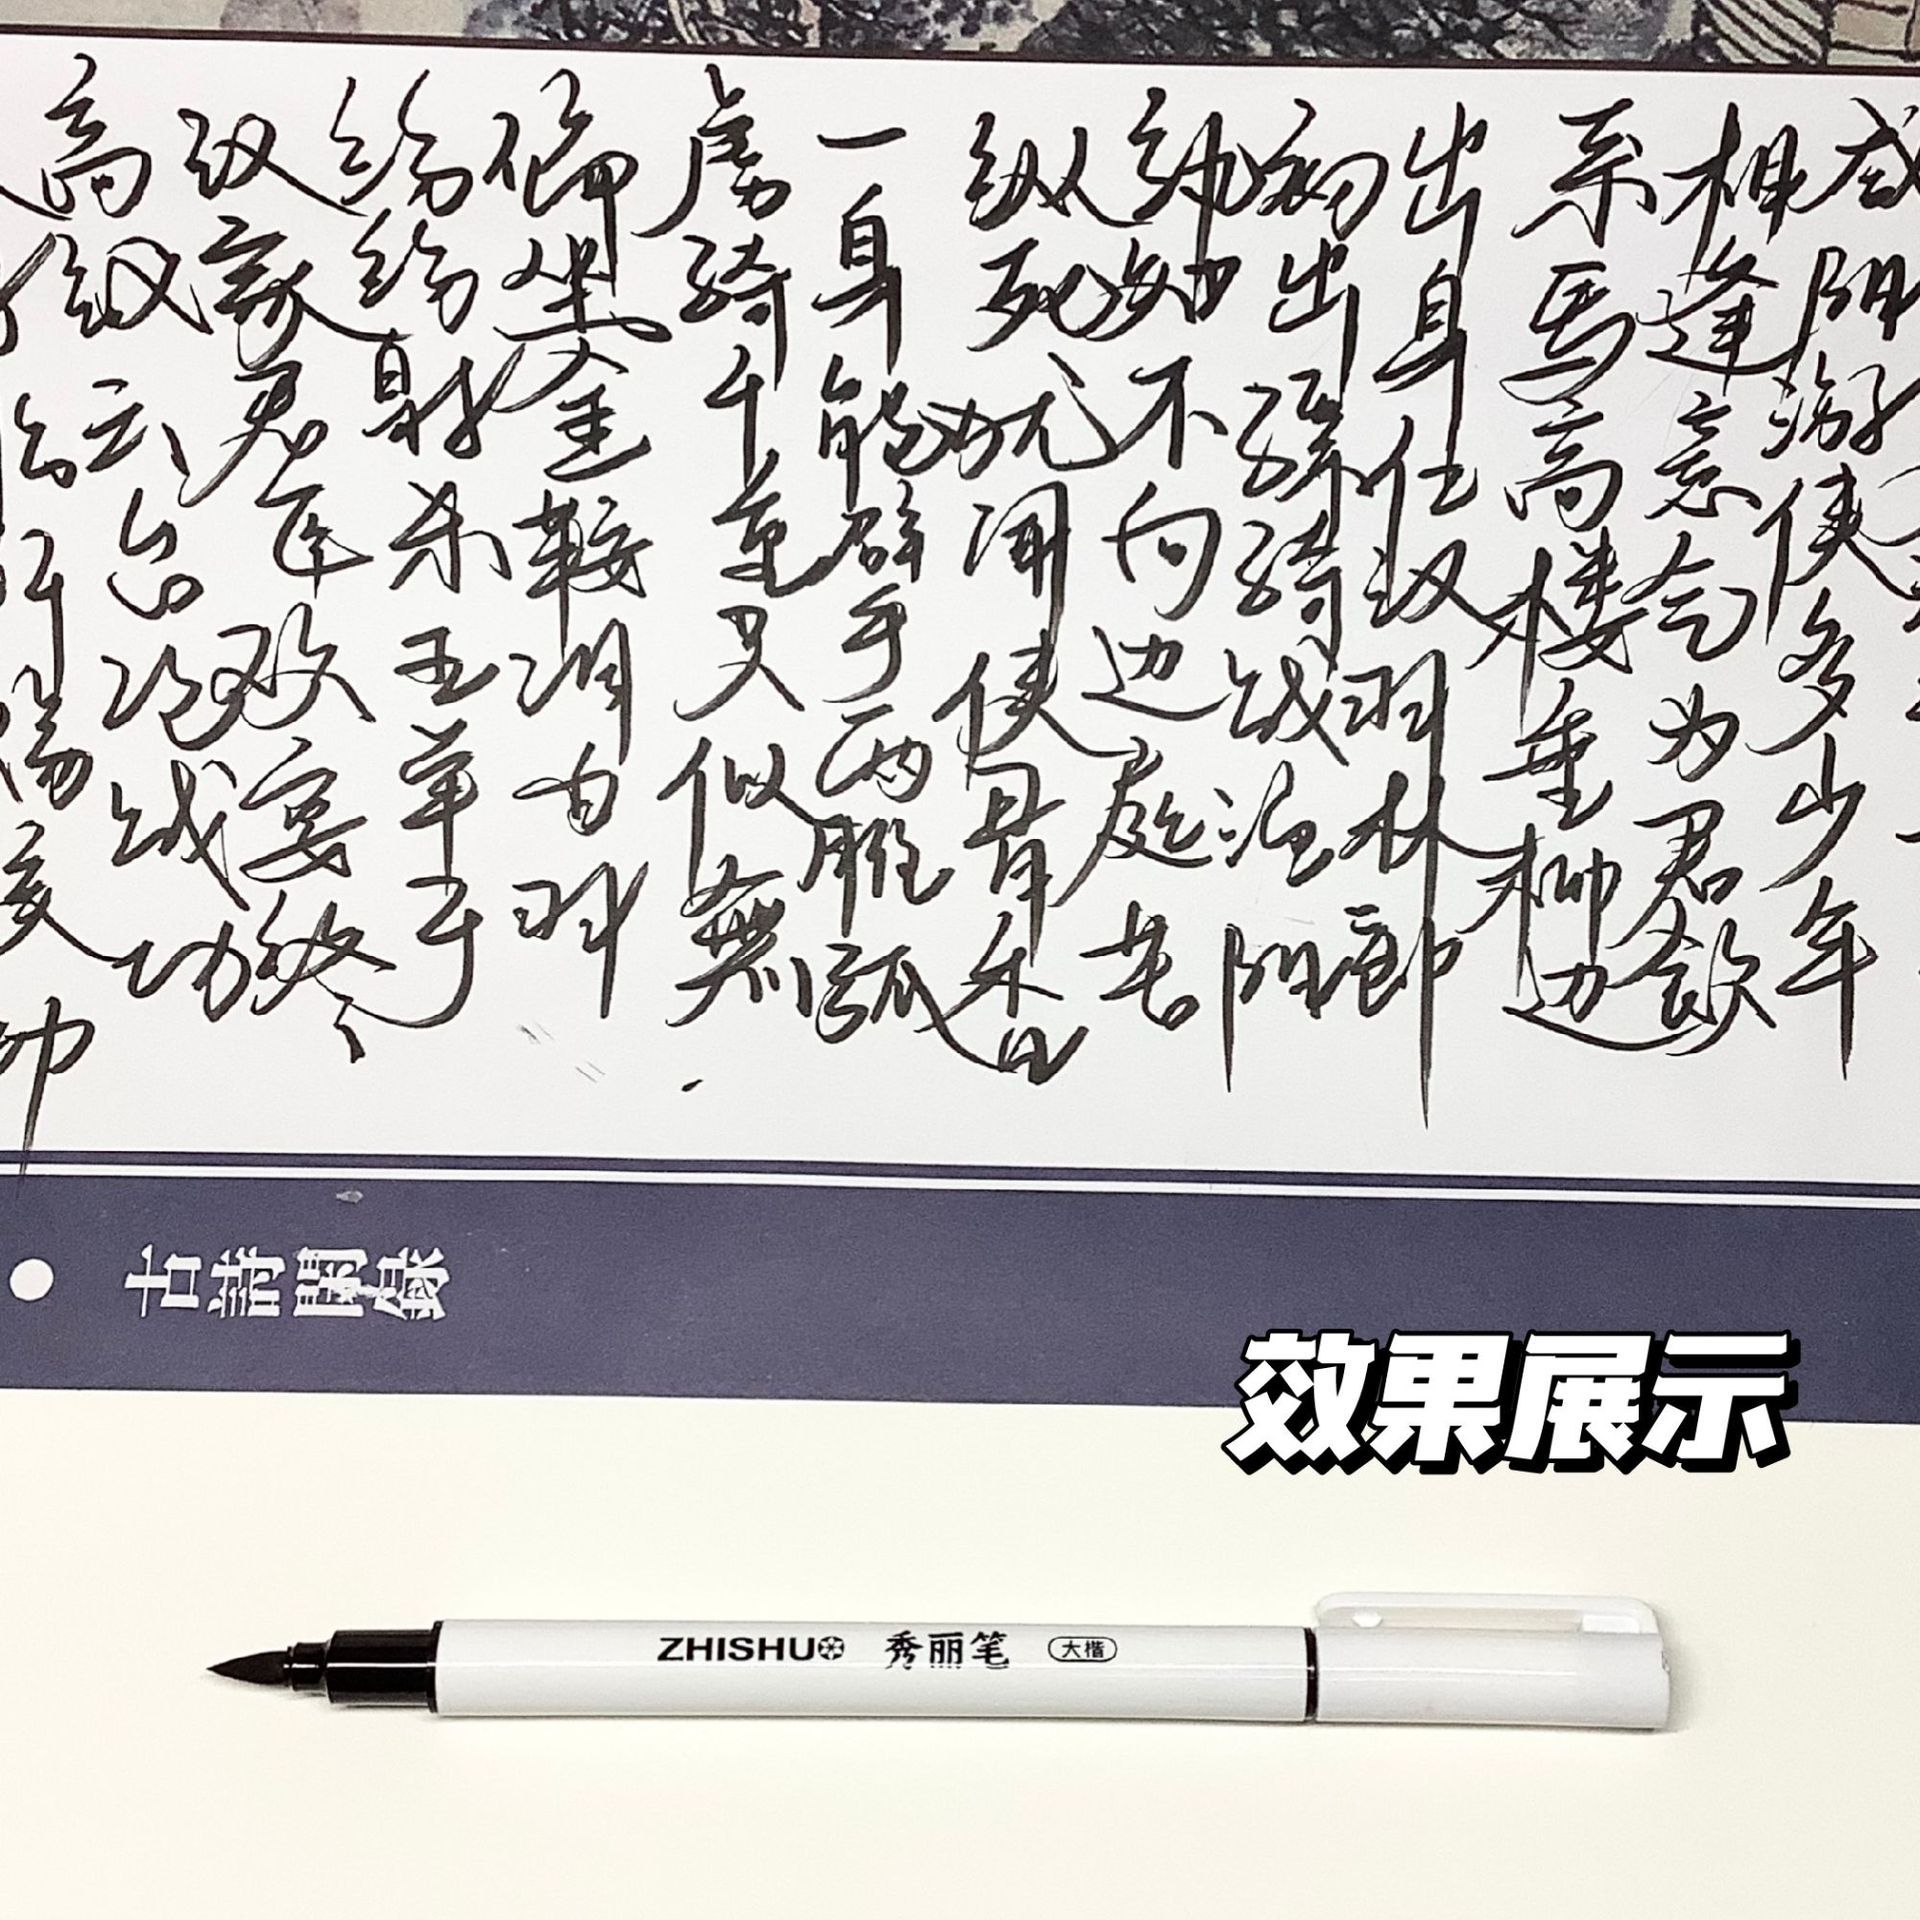 咸阳游侠多少年
相逢意气为君饮
系马高楼垂柳边
出身仕汉羽林郎
初出骠骑战渔阳
孰知不向边庭苦
纵死犹闻侠骨香
一身能擘两雕弧
虏骑千重只似無
偏坐金鞍调白羽
纷纷射杀五单于
汉家君臣欢宴终
高议云台论战功
古詩閒錄
效果展示
ZHISHU 秀丽笔 大楷